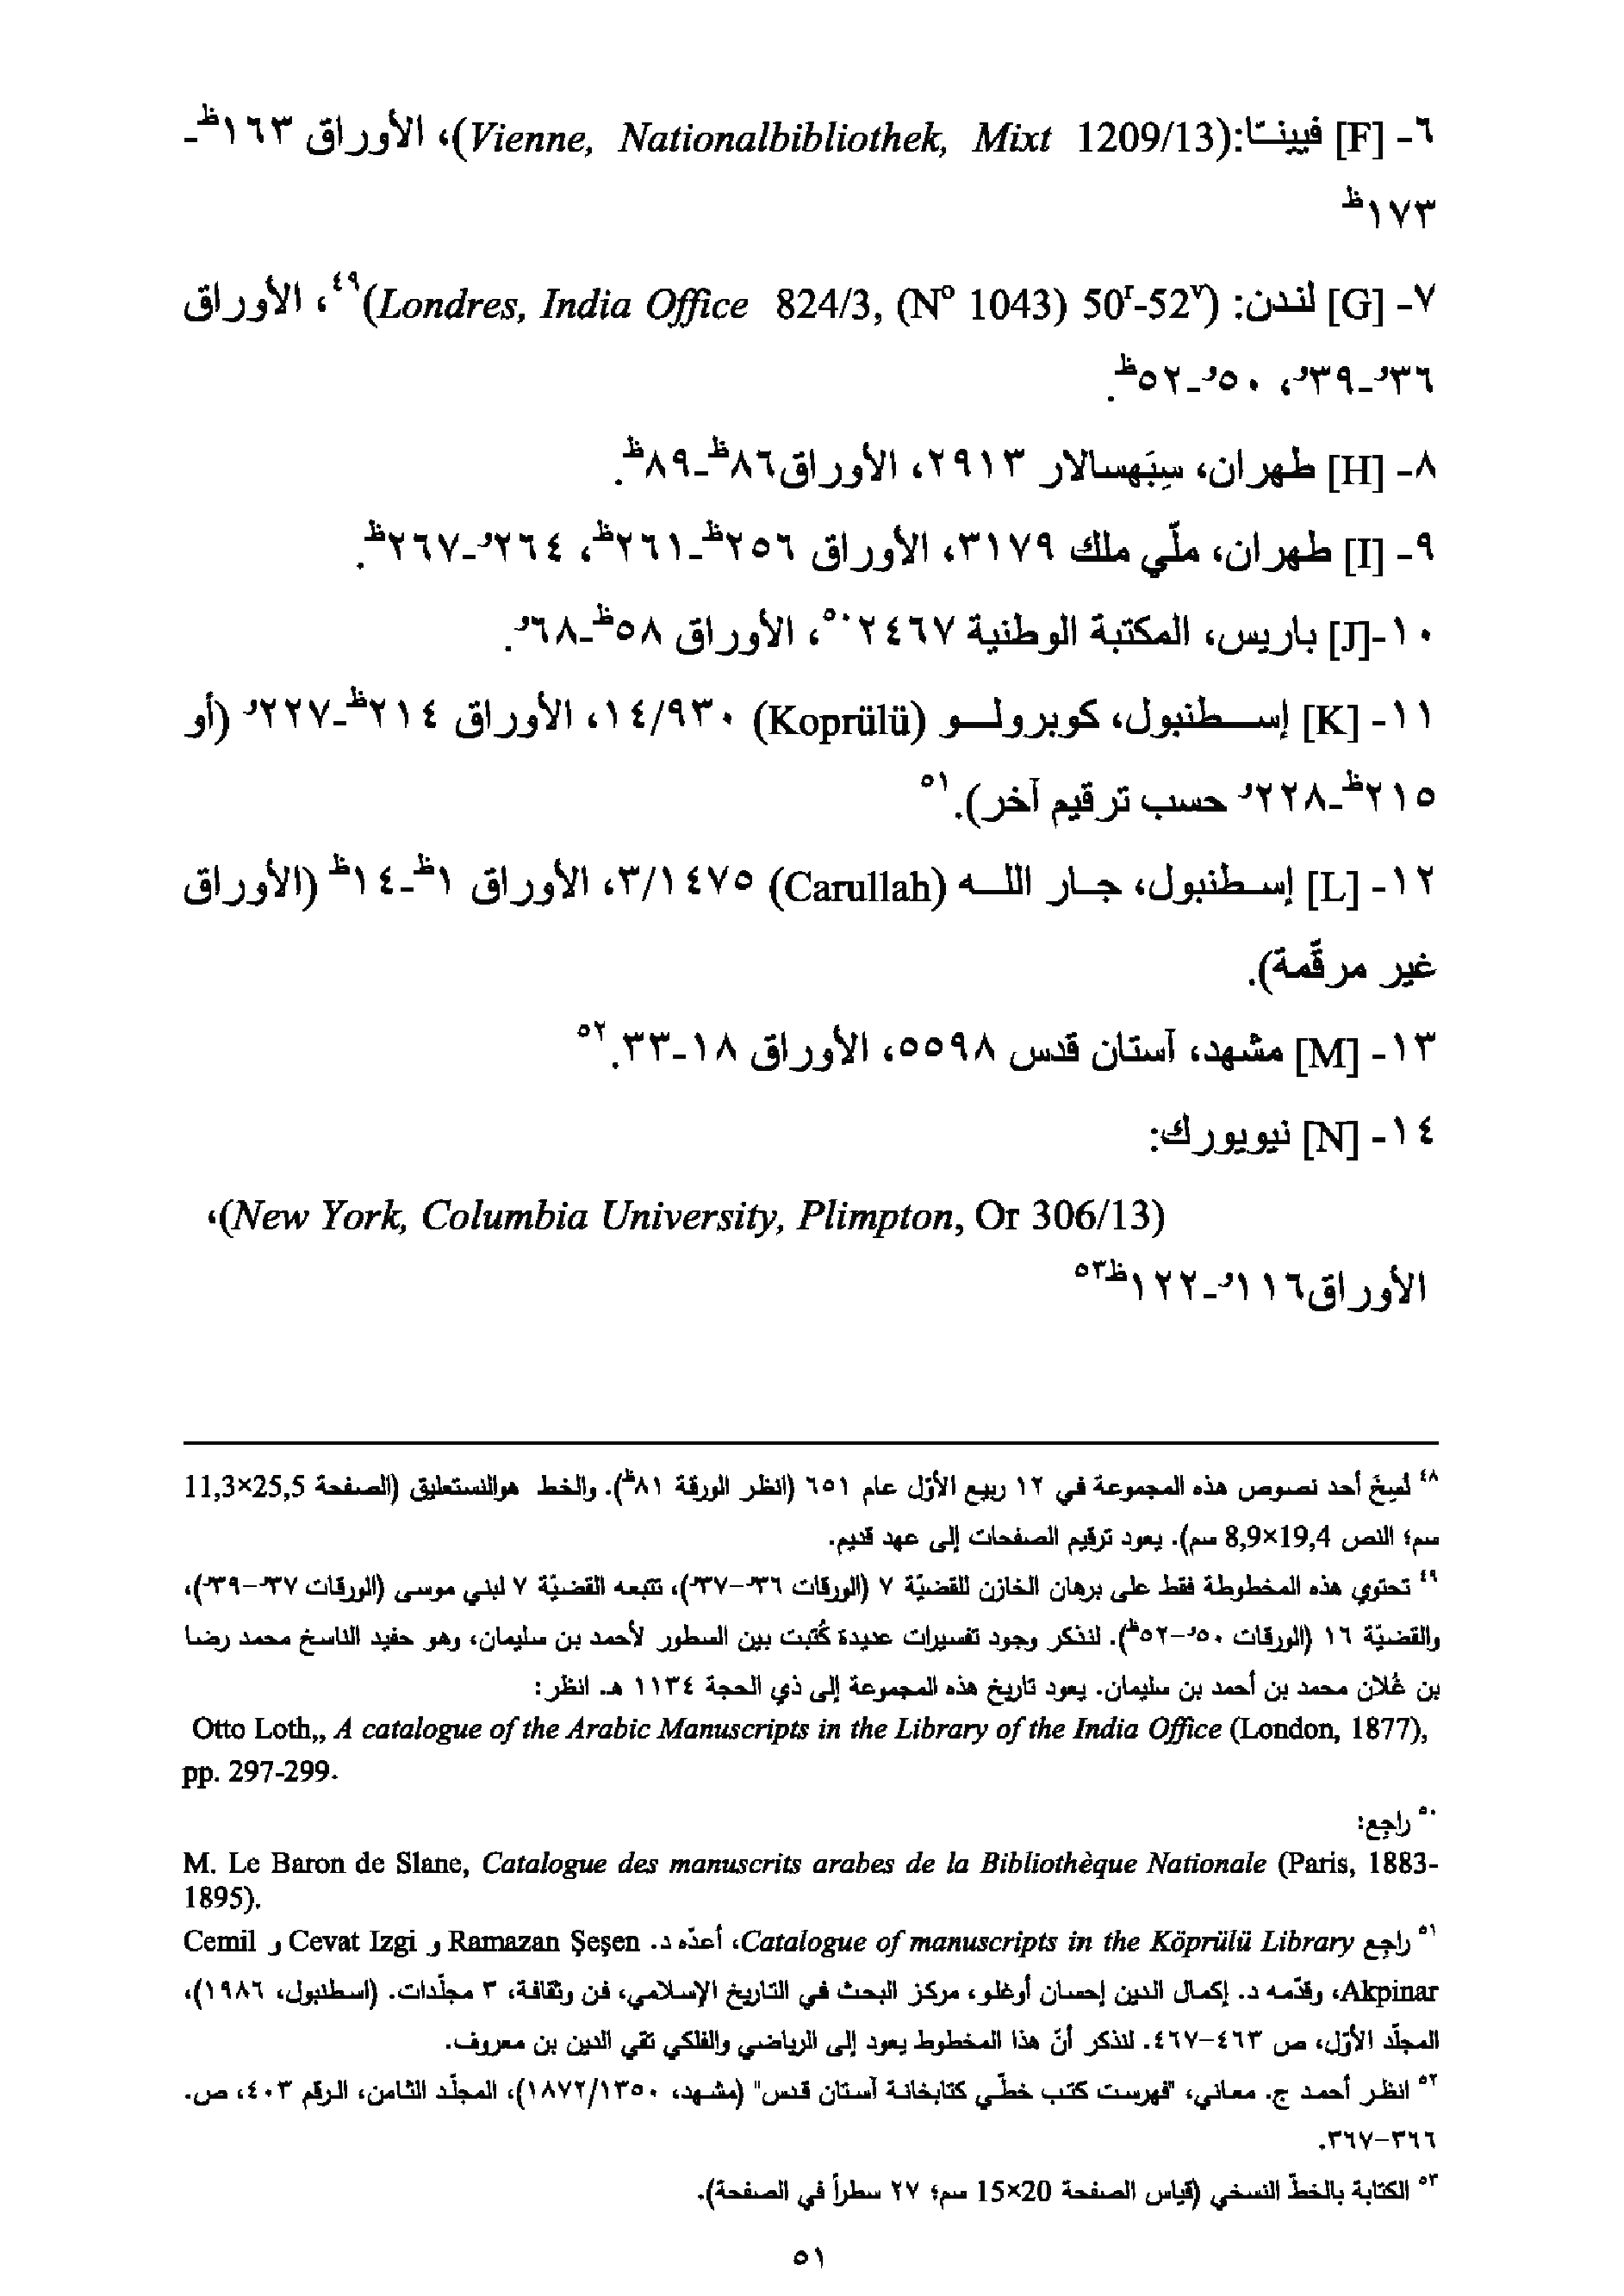 ٦- [F] فيينّا:(Vienne, Nationalbibliothek, Mixt 1209/13)، الأوراق ١٦٣ظ-
١٧٣ظ
٧- [G] لندن: (Londres, India Office 824/3, (Nº 1043) 50r-52v)٤٩، الأوراق
٣٦و-٣٩و، ٥٠و-٥٢ظ.
٨- [H] طهران، سِبَهسالار ٢٩١٣، الأوراق٨٦ظ-٨٩ظ.
٩- [I] طهران، ملّي ملك ٣١٧٩، الأوراق ٢٥٦ظ-٢٦١ظ، ٢٦٤و-٢٦٧ظ.
١٠-[J] باريس، المكتبة الوطنية ٢٤٦٧٥٠، الأوراق ٥٨ظ-٦٨و.
١١- [K] إسطنبول، كوبرولو (Koprülü) ١٤/٩٣٠، الأوراق ٢١٤ظ-٢٢٧و (أو
٢١٥ظ-٢٢٨و حسب ترقيم آخر).٥١
١٢- [L] إسطنبول، جار الله (Carullah) ٣/١٤٧٥، الأوراق ١ظ-١٤ظ (الأوراق
غير مرقّمة).
١٣- [M] مشهد، آستان قدس ٥٥٩٨، الأوراق ١٨-٣٣.٥٢
١٤- [N] نيويورك:
(New York, Columbia University, Plimpton, Or 306/13)،
الأوراق١١٦و-١٢٢ظ٥٣
٤٨ نُسِخَ أحد نصوص هذه المجموعة في ١٢ ربيع الأوّل عام ٦٥١ (انظر الورقة ٨١ظ). والخط هوالنستعليق (الصفحة 11,3×25,5
سم؛ النص 8,9×19,4 سم). يعود ترقيم الصفحات إلى عهد قديم.
٤٩ تحتوي هذه المخطوطة فقط على برهان الخازن للقضيّة ٧ (الورقات ٣٦و-٣٧و)، تتبعه القضيّة ٧ لبني موسى (الورقات ٣٧و-٣٩و)،
والقضيّة ١٦ (الورقات ٥٠و-٥٢ظ). لنذكر وجود تفسيرات عديدة كُتبت بين السطور لأحمد بن سليمان، وهو حفيد الناسخ محمد رضا
بن غُلان محمد بن أحمد بن سليمان. يعود تاريخ هذه المجموعة إلى ذي الحجة ١١٣٤ هـ. انظر:
Otto Loth,, A catalogue of the Arabic Manuscripts in the Library of the India Office (London, 1877),
pp. 297-299.
٥٠ راجِع:
M. Le Baron de Slane, Catalogue des manuscrits arabes de la Bibliothèque Nationale (Paris, 1883-
1895).
٥١ راجِع Catalogue of manuscripts in the Köprülü Library، أعدّه د. Ramazan Şeşen و Cevat Izgi و Cemil
Akpinar، وقدّمه د. إكمال الدين إحسان أوغلو، مركز البحث في التاريخ الإسلامي، فن وثقافة، ٣ مجلّدات. (اسطنبول، ١٩٨٦)،
المجلّد الأوّل، ص ٤٦٣-٤٦٧. لنذكر أنّ هذا المخطوط يعود إلى الرياضي والفلكي تقي الدين بن معروف.
٥٢ انظر أحمد ج. معاني، "فهرست كتب خطّي كتابخانة آستان قدس" (مشهد، ١٨٧٢/١٣٥٠)، المجلّد الثامن، الرقم ٤٠٣، ص.
٣٦٦-٣٦٧.
٥٣ الكتابة بالخطّ النسخي (قياس الصفحة 15×20 سم؛ ٢٧ سطراً في الصفحة).
٥١